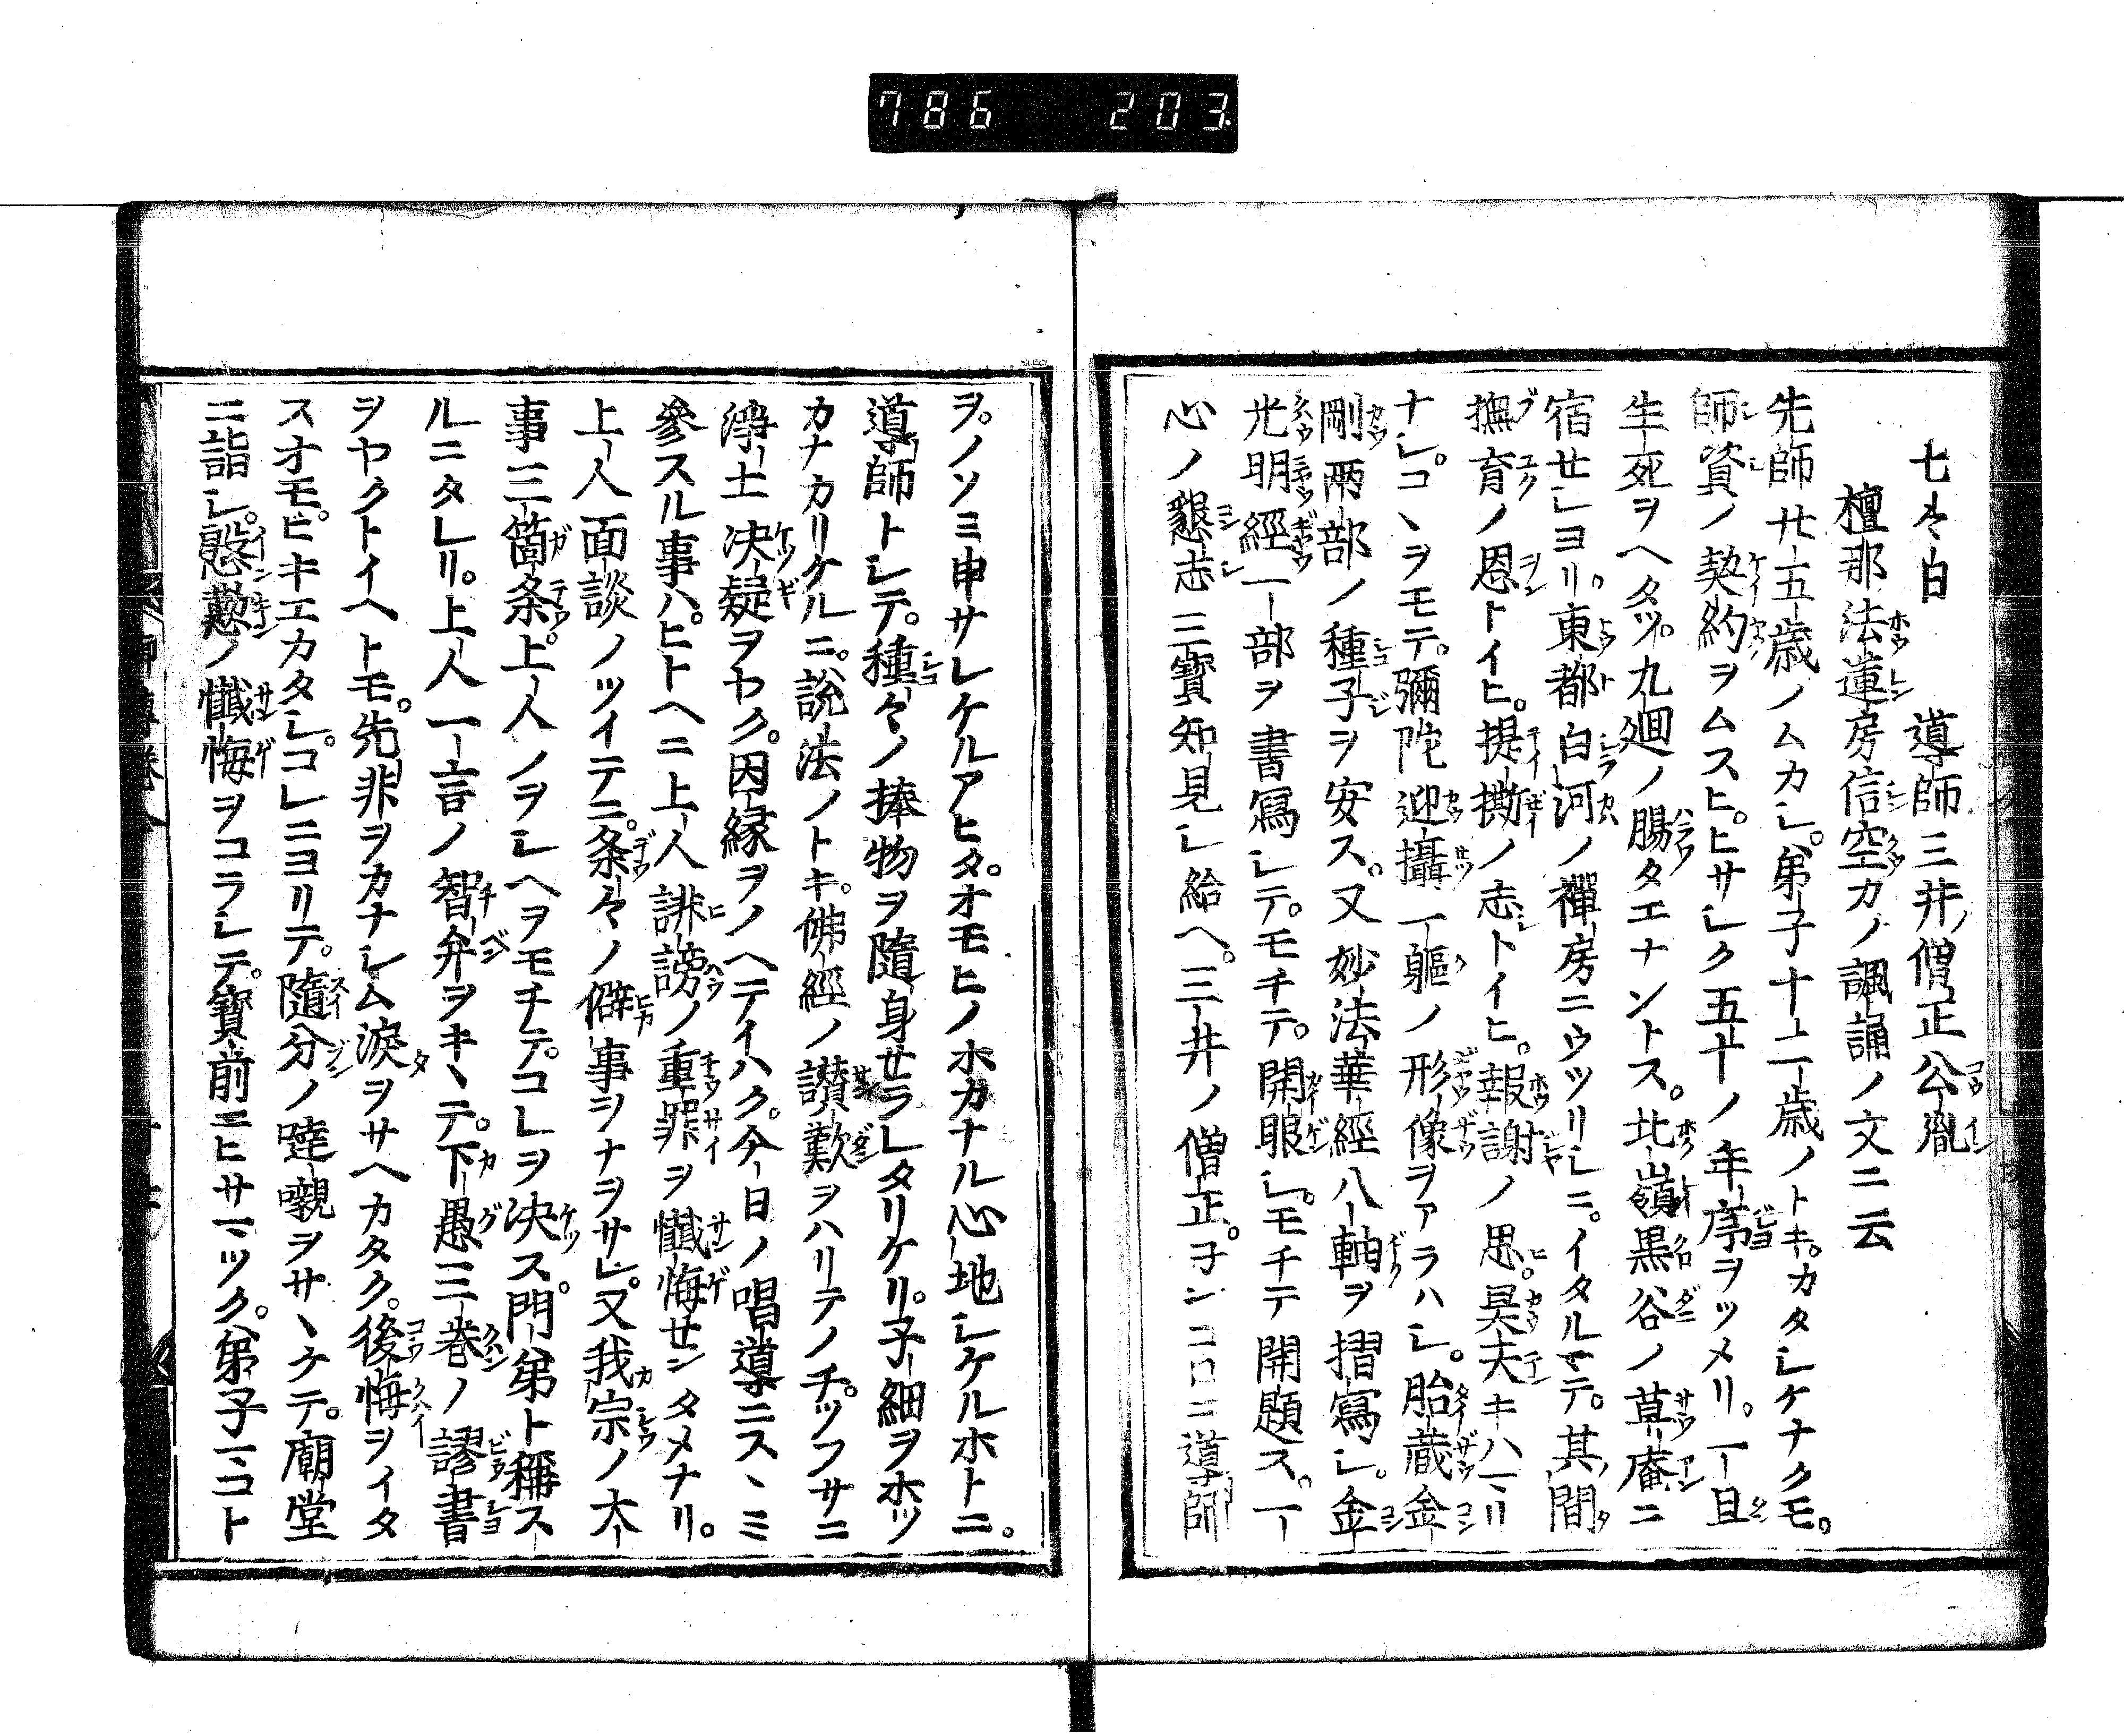 786 203
七々日 導師三井ノ僧正公胤
檀那法蓮房信空カノ諷誦ノ文ニ云
先師廿五歳ノムカシ。弟子十二歳ノトキ。カタシケナクモ。
師資ノ契約ヲムスヒ。ヒサシク五十ノ年序ヲツメリ。一旦
生死ヲヘタツ。九廻ノ腸タエナントス。北嶺黒谷ノ草庵ニ
宿セシヨリ。東都白河ノ禪房ニウツリシニ。イタルマテ。其間
撫育ノ恩トイヒ。提撕ノ志トイヒ。報謝ノ思。昊天キハマリ
ナシ。コヽヲモテ。彌陀迎攝一軀ノ形像ヲアラハシ。胎蔵金
剛兩部ノ種子ヲ安ス。又妙法華經八軸ヲ摺寫シ。金
光明經一部ヲ書寫シテ。モチテ。開眼シ。モチテ開題ス。一
心ノ懇志三寶知見シ給ヘ。三井ノ僧正。子ンコロニ導師
ヲ。ノソミ申サレケルアヒタ。オモヒノホカナル心地シケルホトニ。
導師トシテ。種々ノ捧物ヲ隨身セラレタリケリ。子細ヲホツ
カナカリケルニ。説法ノトキ。佛經ノ讃歎ヲハリテノチ。ツフサニ
淨土決疑ヲヤク。因縁ヲノヘテイハク。今日ノ唱導ニスヽミ
參スル事ハ。ヒトヘニ上人誹謗ノ重罪ヲ懺悔センタメナリ。
上人面談ノツイテニ。条々ノ僻事ヲナヲサレ。又我宗ノ大
事三箇条。上人ノヲシヘヲモチテ。コレヲ決ス。門弟ト稱ス
ルニタレリ。上人一言ノ智弁ヲキヽテ。下愚三巻ノ謬書
ヲヤクトイヘトモ。先非ヲカナシム涙ヲサヘカタク。後悔ヲイタ
スオモヒキエカタシ。コレニヨリテ。隨分ノ噠嚫ヲサヽケテ。廟堂
ニ詣シ。慇懃ノ懺悔ヲコラシテ。寶前ニヒサマツク。弟子マコト